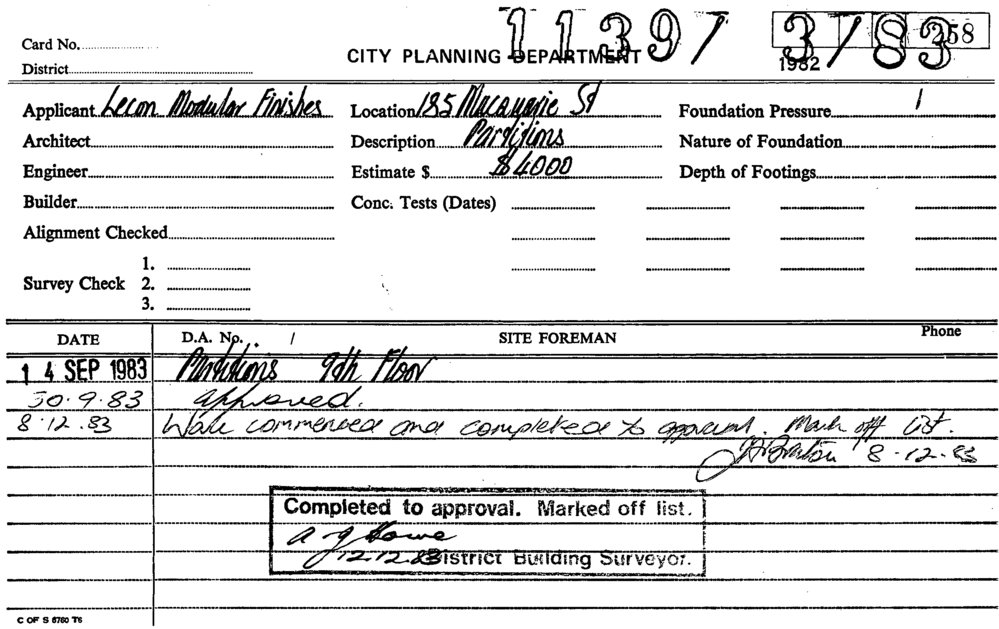 11397 3783
258
1982
Card No.
CITY PLANNING DEPARTMENT
District
Applicant Lecon Modular Finishes Location 185 Macquarie St Foundation Pressure
Architect Description Partitions Nature of Foundation
Engineer Estimate $ $4000 Depth of Footings
Builder Conc. Tests (Dates)
Alignment Checked
1.
Survey Check 2.
3.
DATE D.A. No. SITE FOREMAN Phone
14 SEP 1983 Partitions 9th Floor
30.9.83 approved.
8.12.83 Work commenced and completed to approval. Mark off list.
8.12.83
Completed to approval. Marked off list.
a g Howe
12.12.83 District Building Surveyor.
C OF S 6760 T6